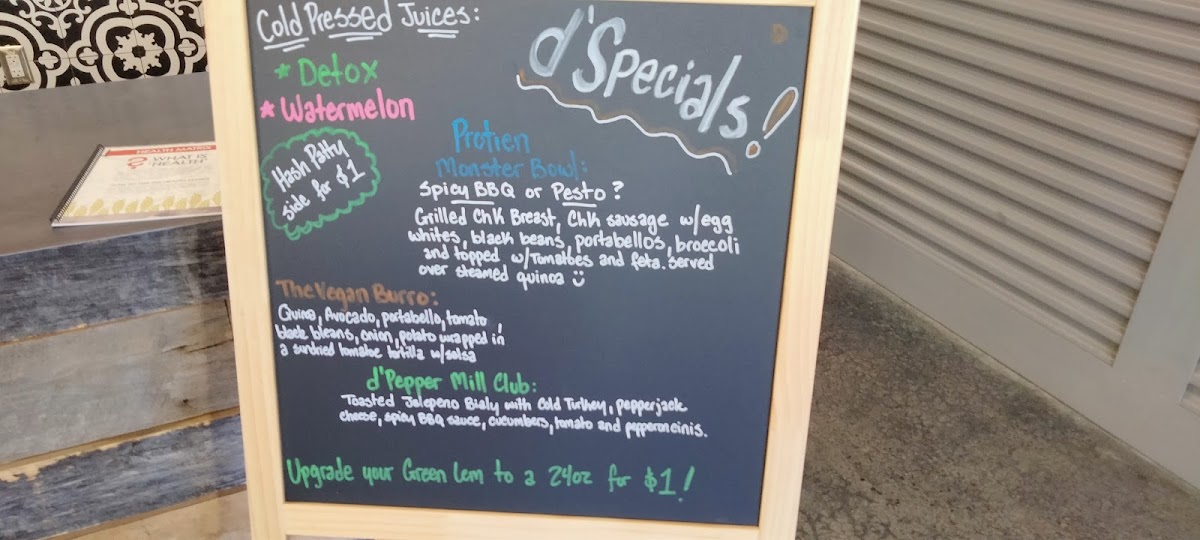 Cold Pressed Juices:
* Detox
* Watermelon
Hash Patty
side for $1
d'Specials!
Protien
Monster Bowl:
Spicy BBQ or Pesto?
Grilled Chk Breast, Chk sausage w/egg
whites, black beans, portabellos, broccoli
and topped w/Tomatoes and feta. Served
over steamed quinoa
The Vegan Burro:
Quinoa, Avocado, portabello, tomato
black beans, onion, potato wrapped in
a sundried tomatoe tortilla w/salsa
d'Pepper Mill Club:
Toasted Jalepeno Bialy with Cold Turkey, pepperjack
cheese, spicy BBQ sauce, cucumbers, tomato and pepperoncinis.
Upgrade your Green Lem to a 24oz for $1!
HEALTH MATRIX
WHAT IS
"HEALTH"